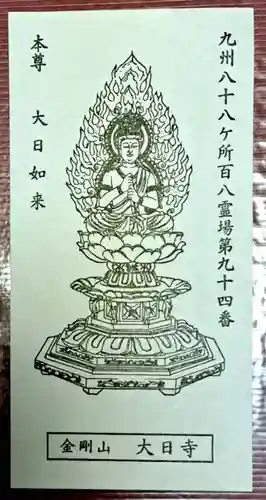 九州八十八ケ所百八霊場第九十四番
本尊 大日如来
金剛山 大日寺